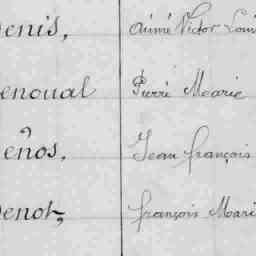 Denis, Aimé Victor Louis
Denoual Pierre Marie
Denôs, Jean françois
Denot, françois Marie